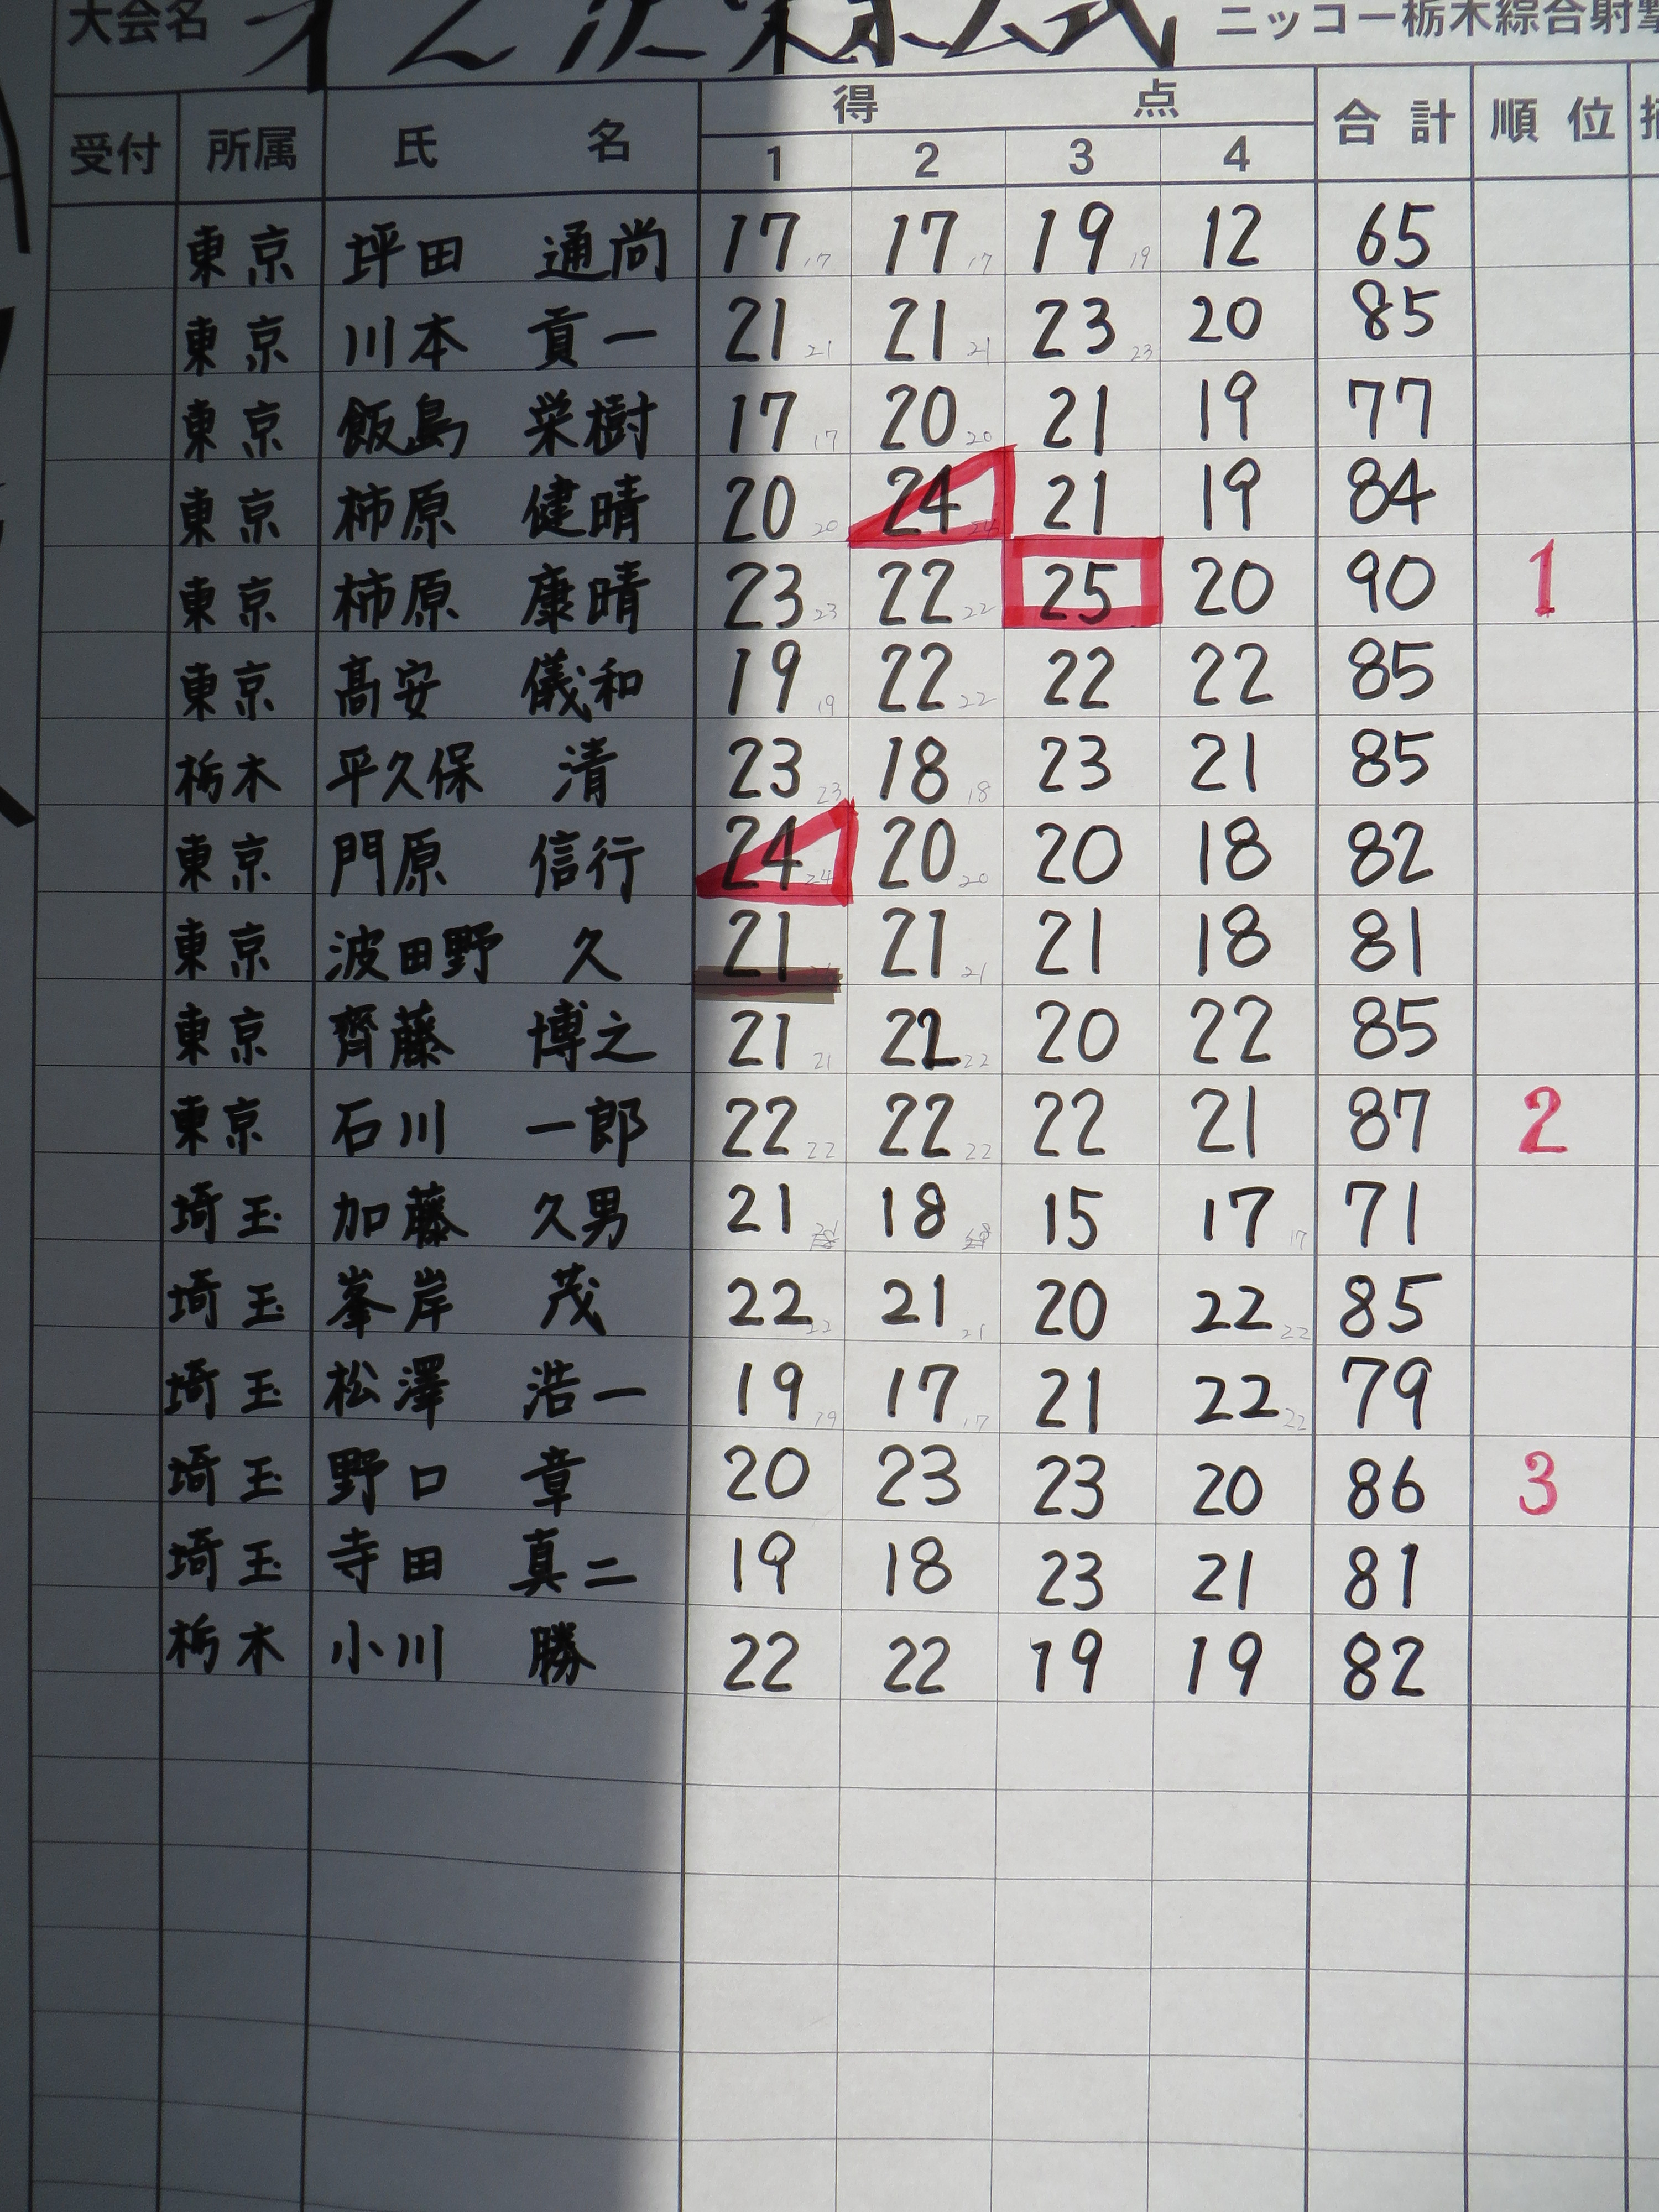 大会名 東京公式 ニッコー栃木綜合射撃
受付 所属 氏名 得点 合計 順位
1 2 3 4
東京 坪田 通尚 17 17 17 17 19 19 12 65
東京 川本 貢一 21 21 21 21 23 23 20 85
東京 飯島 栄樹 17 17 20 20 21 19 77
東京 柿原 健晴 20 20 24 24 21 19 84
東京 柿原 康晴 23 23 22 22 25 20 90 1
東京 髙安 儀和 19 19 22 22 22 22 85
栃木 平久保 清 23 23 18 18 23 21 85
東京 門原 信行 24 24 20 20 20 18 82
東京 波田野 久 21 21 21 21 18 81
東京 齊藤 博之 21 21 22 22 20 22 85
東京 石川 一郎 22 22 22 22 22 21 87 2
埼玉 加藤 久男 21 18 15 17 17 71
埼玉 峯岸 茂 22 22 21 21 20 22 22 85
埼玉 松澤 浩一 19 19 17 17 21 22 22 79
埼玉 野口 章 20 23 23 20 86 3
埼玉 寺田 真二 19 18 23 21 81
栃木 小川 勝 22 22 19 19 82